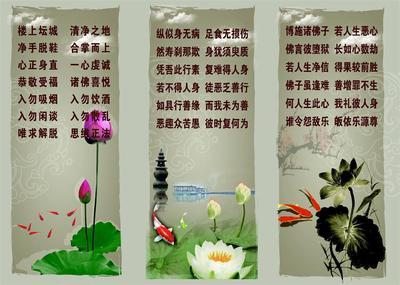 楼上坛城 清净之地
净手脱鞋 合掌而上
心正身直 一心虔诚
恭敬受福 诸佛喜悦
入勿吸烟 入勿饮酒
入勿闲谈 入勿散乱
唯求解脱 思维正法
纵似身无病 足食无损伤
然寿刹那欺 身犹须臾质
凭吾此行素 复难得人身
若不得人身 徒恶乏善行
如具行善缘 而我未为善
恶趣众苦愚 彼时复何为
博施诸佛子 若人生恶心
佛言彼堕狱 长如心数劫
若人生净信 得果较前胜
佛子虽逢难 善增罪不生
何人生此心 我礼彼人身
谁令怨敌乐 皈依乐源尊